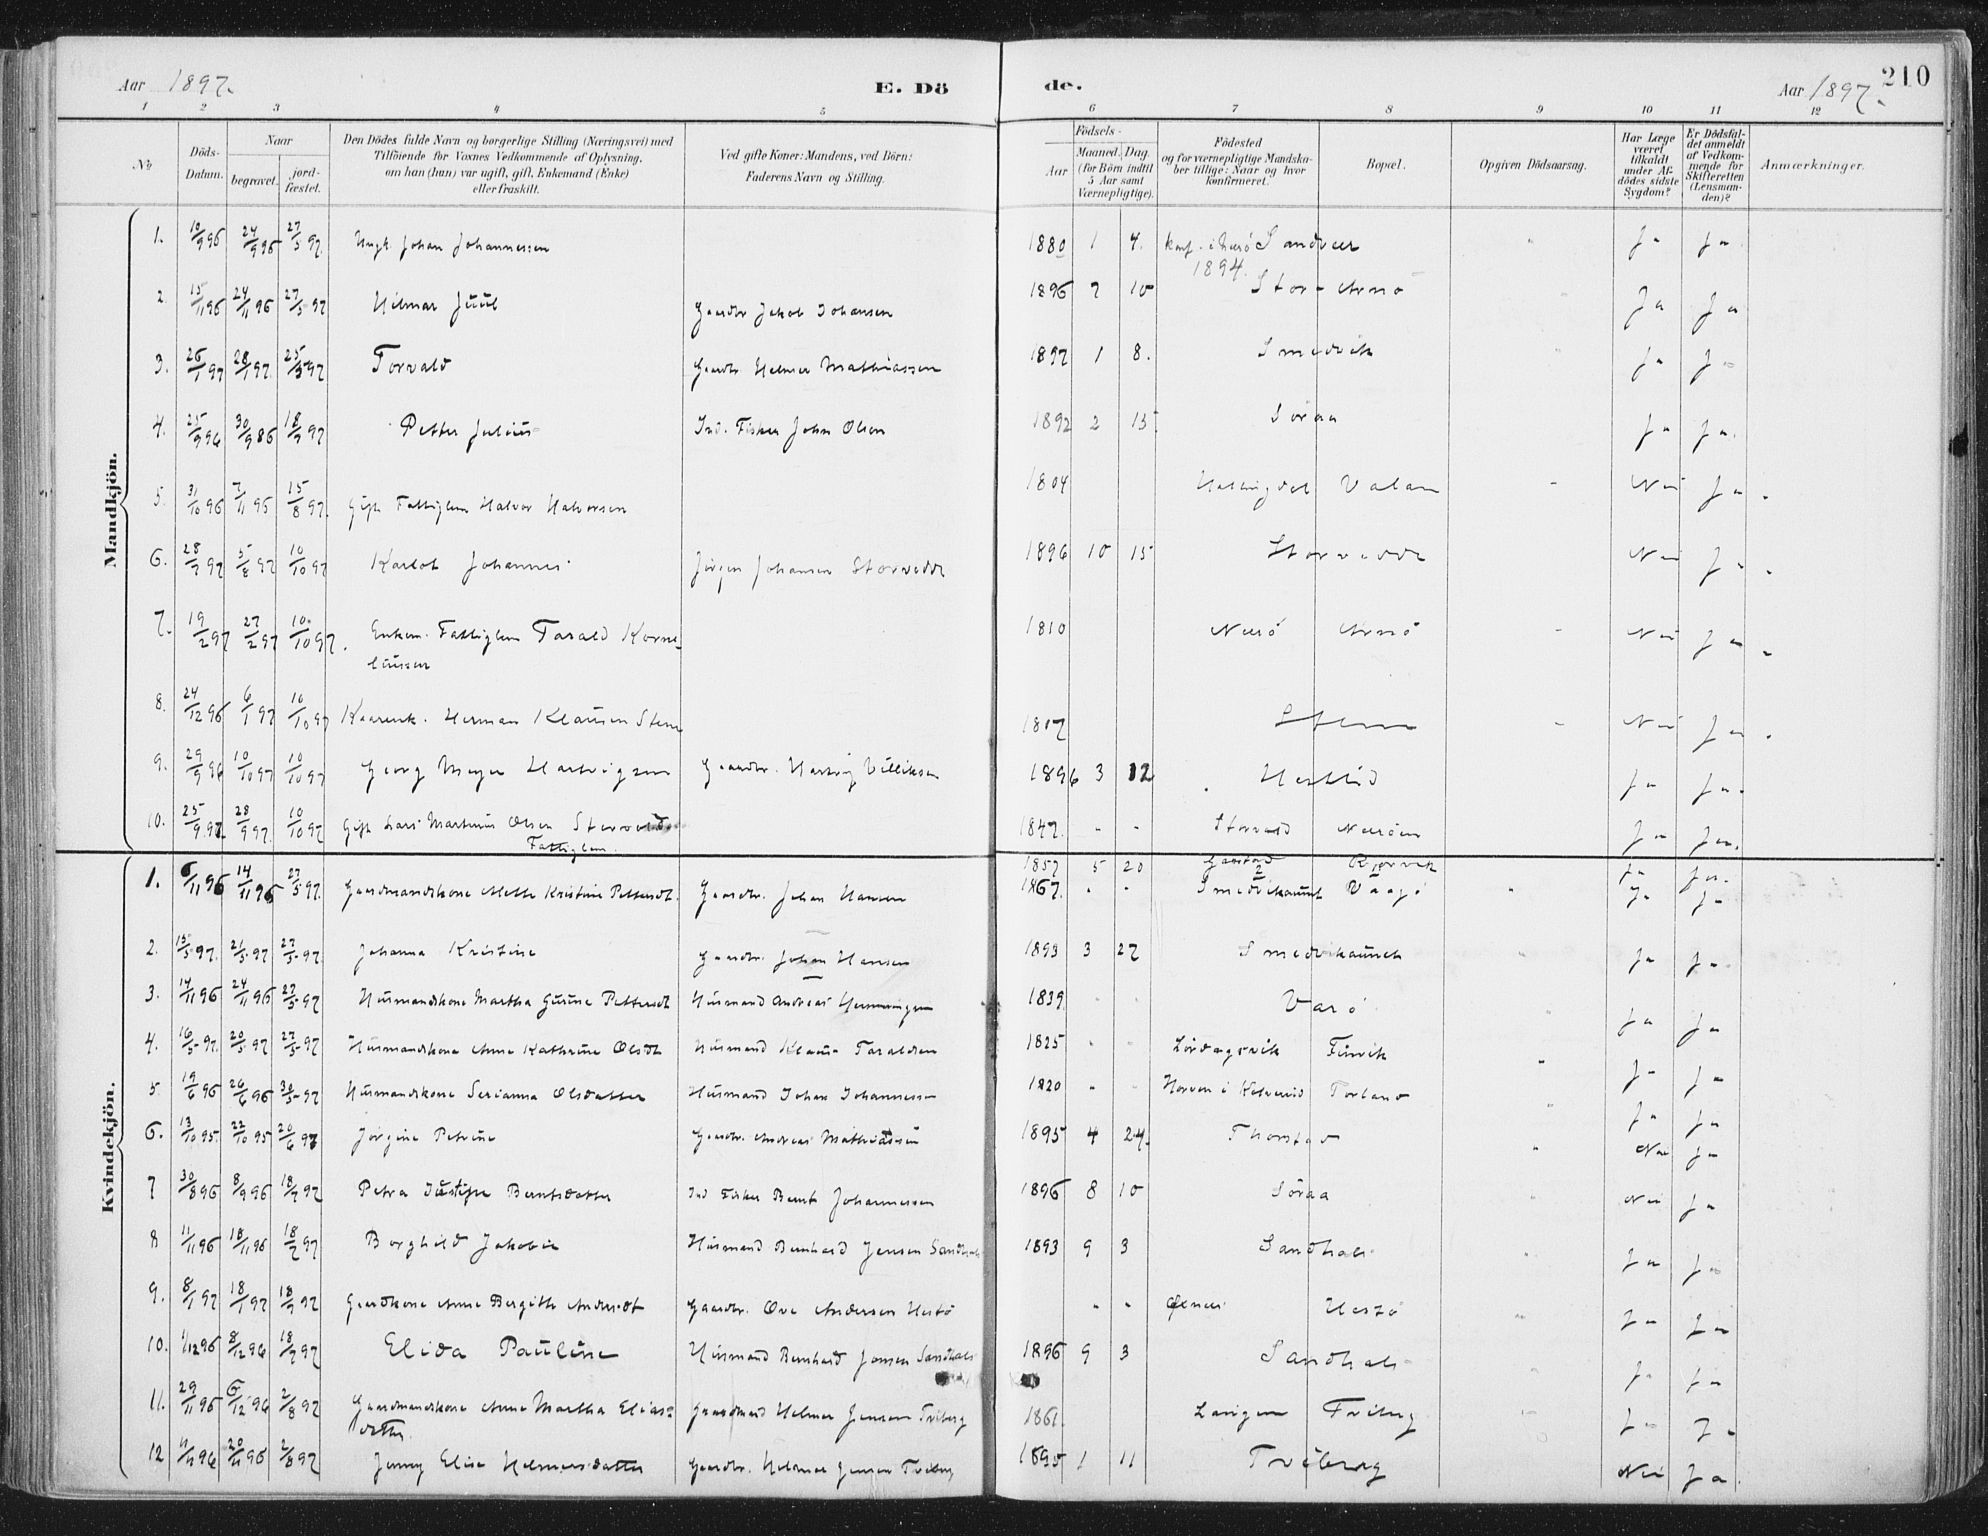 Aar 1897.
E. Dö
de.
Aar 1897.
210
1 2 3 4 5 6 7 8 9 10 11 12
№
Döds-Datum.
Naar
begravet.
jord-fæstet.
Den Dödes fulde Navn og borgerlige Stilling (Næringsvei) med
Tilföiende for Voxnes Vedkommende af Oplysning,
om han (hun) var ugift, gift, Enkemand (Enke)
eller fraskilt.
Ved gifte Koner: Mandens, ved Börn:
Faderens Navn og Stilling.
Födsels-
Aar
Maaned. Dag.
(for Börn indtil
5 Aar samt
Værnepligtige).
Födested
og for værnepligtige Mandska-
ber tillige: Naar og hvor
konfirmeret.
Bopæl.
Opgiven Dödsaarsag.
Har Læge
været
tilkaldt
under Af-
dödes sidste
Sygdom?
Er Dödsfal-
det anmeldt
af Vedkom-
mende for
Skifteretten
(Lensman-
den)?
Anmærkninger.
Mandkjön.
1. 10/9 96 24/9 96 27/5 97. Ungk. Johan Johannessen 1880 1 4. konf. i Nærö 1894. Sandvær Ja Ja
2. 15/11 96 24/11 96 27/5 97 Hilmar Juul Gaardbr Jakob Johansen 1896 7 10 Stor-Arnö Ja Ja
3. 26/1 97 28/1 97. 25/3 97 Torvald Gaardbr. Helmer Mathiassen 1897 1 8. Smedvik Ja Ja
4. 25/9 96 30/9 86 18/7 97 Petter Julius Ind. Fisker John Olsen 1892 2 15 Söraa Ja Ja.
5. 31/10 96 7/11 96 15/8 97. Gift Fattiglem Halvor Halvorsen 1804 Hallingdal Valan Nei Ja
6. 28/7 97 5/8 97 10/10 97 Karlot Johannes Jörgen Johansen Storvedde 1896 10 15 Storvedde Nei Ja
7. 19/2 97 27/2 97 10/10 97. Enkem. Fattiglem Tarald Korne-
liussen 1810 Nærö Arnö Nei Ja
8. 24/12 96 6/1 97 10/10 97 Kaarenk. Herman Klausen Stene 1807 Stene Nei Ja
9. 29/9 96 10/10 97 10/10 97 Georg Meyer Hartvigsen Gaardbr. Hartvig Villiksen 1896 3 12 Hestlid Ja Ja.
10. 25/9 97. 28/9 97. 10/10 97 Gift Lars Martinus Olsen Storvedde
Fattiglem. 1847. Ja Ja.
Kvindekjön.
1857 5 20 Rjörvik Ja Ja
1. 6/11 96 14/11 96 27/5 97. Gaardmandskone Mette Kristine Pettersdt. Gaardbr. Johan Hansen 1867. Vaagö Ja Ja
2. 15/5 97. 21/5 97 27/5 97 Johanna Kristine Gaardbr. Johan Hansen 1893 3 27 Ja Ja
3. 14/11 96 24/11 96 27/5 97 Husmandskone Martha Gurine Pettersdt Husmand Andreas Henningsen 1839 Varö Ja Ja
4. 16/5 97. 20/5 97 27/5 97 Husmandskone Anne Kathrine Olsdt Husmand Klaus Taraldsen 1825 Lördagsvik Finvik Ja Ja
5. 19/6 96 26/6 96 30/5 97 Husmandskone Serianna Olsdatter Husmand Johan Johannessen 1820 Horven i Kolvereid Torland Ja Ja
6. 13/10 95. 22/10 95 20/6 97 Jörgine Petrine Gaardbr. Andreas Mathiassen 1895 4 24. Thorstad Nei Ja
7 30/8 96 8/9 96 18/7 97 Petra Justine Berntsdatter Ind Fisker Bernt Johannessen 1896 8 10 Söraa Nei Ja
8 11/11 96 18/11 96 18/7 97 Borghild Jakobie Husmand Bernhard Jensen Sandhals 1893 9 3 Sandhals Ja Ja
9. 8/1 97 18/1 97 18/7 97 Gaardkone Anne Bergitte Andersdt Gaardbr. Ove Andersen Hestö Hestö Ja Ja
10. 1/12 96 8/12 96 18/7 97 Elida Pauline Husmand Bernhard Jensen Sandhals 1896 9 3 Sandhals Ja Ja
11. 29/11 96 6/12 96 2/8 97 Gaardmandskone Anne Martha Elias-
datter Gaardmand Helmer Jensen Tviberg 1861. Tviberg Ja Ja
12 11/11 96 20/11 96 2/8 97 Jenny Elise Helmersdatter Gaardbr. Helmer Jensen Tviberg 1895 1 11 Tviberg Nei Ja.